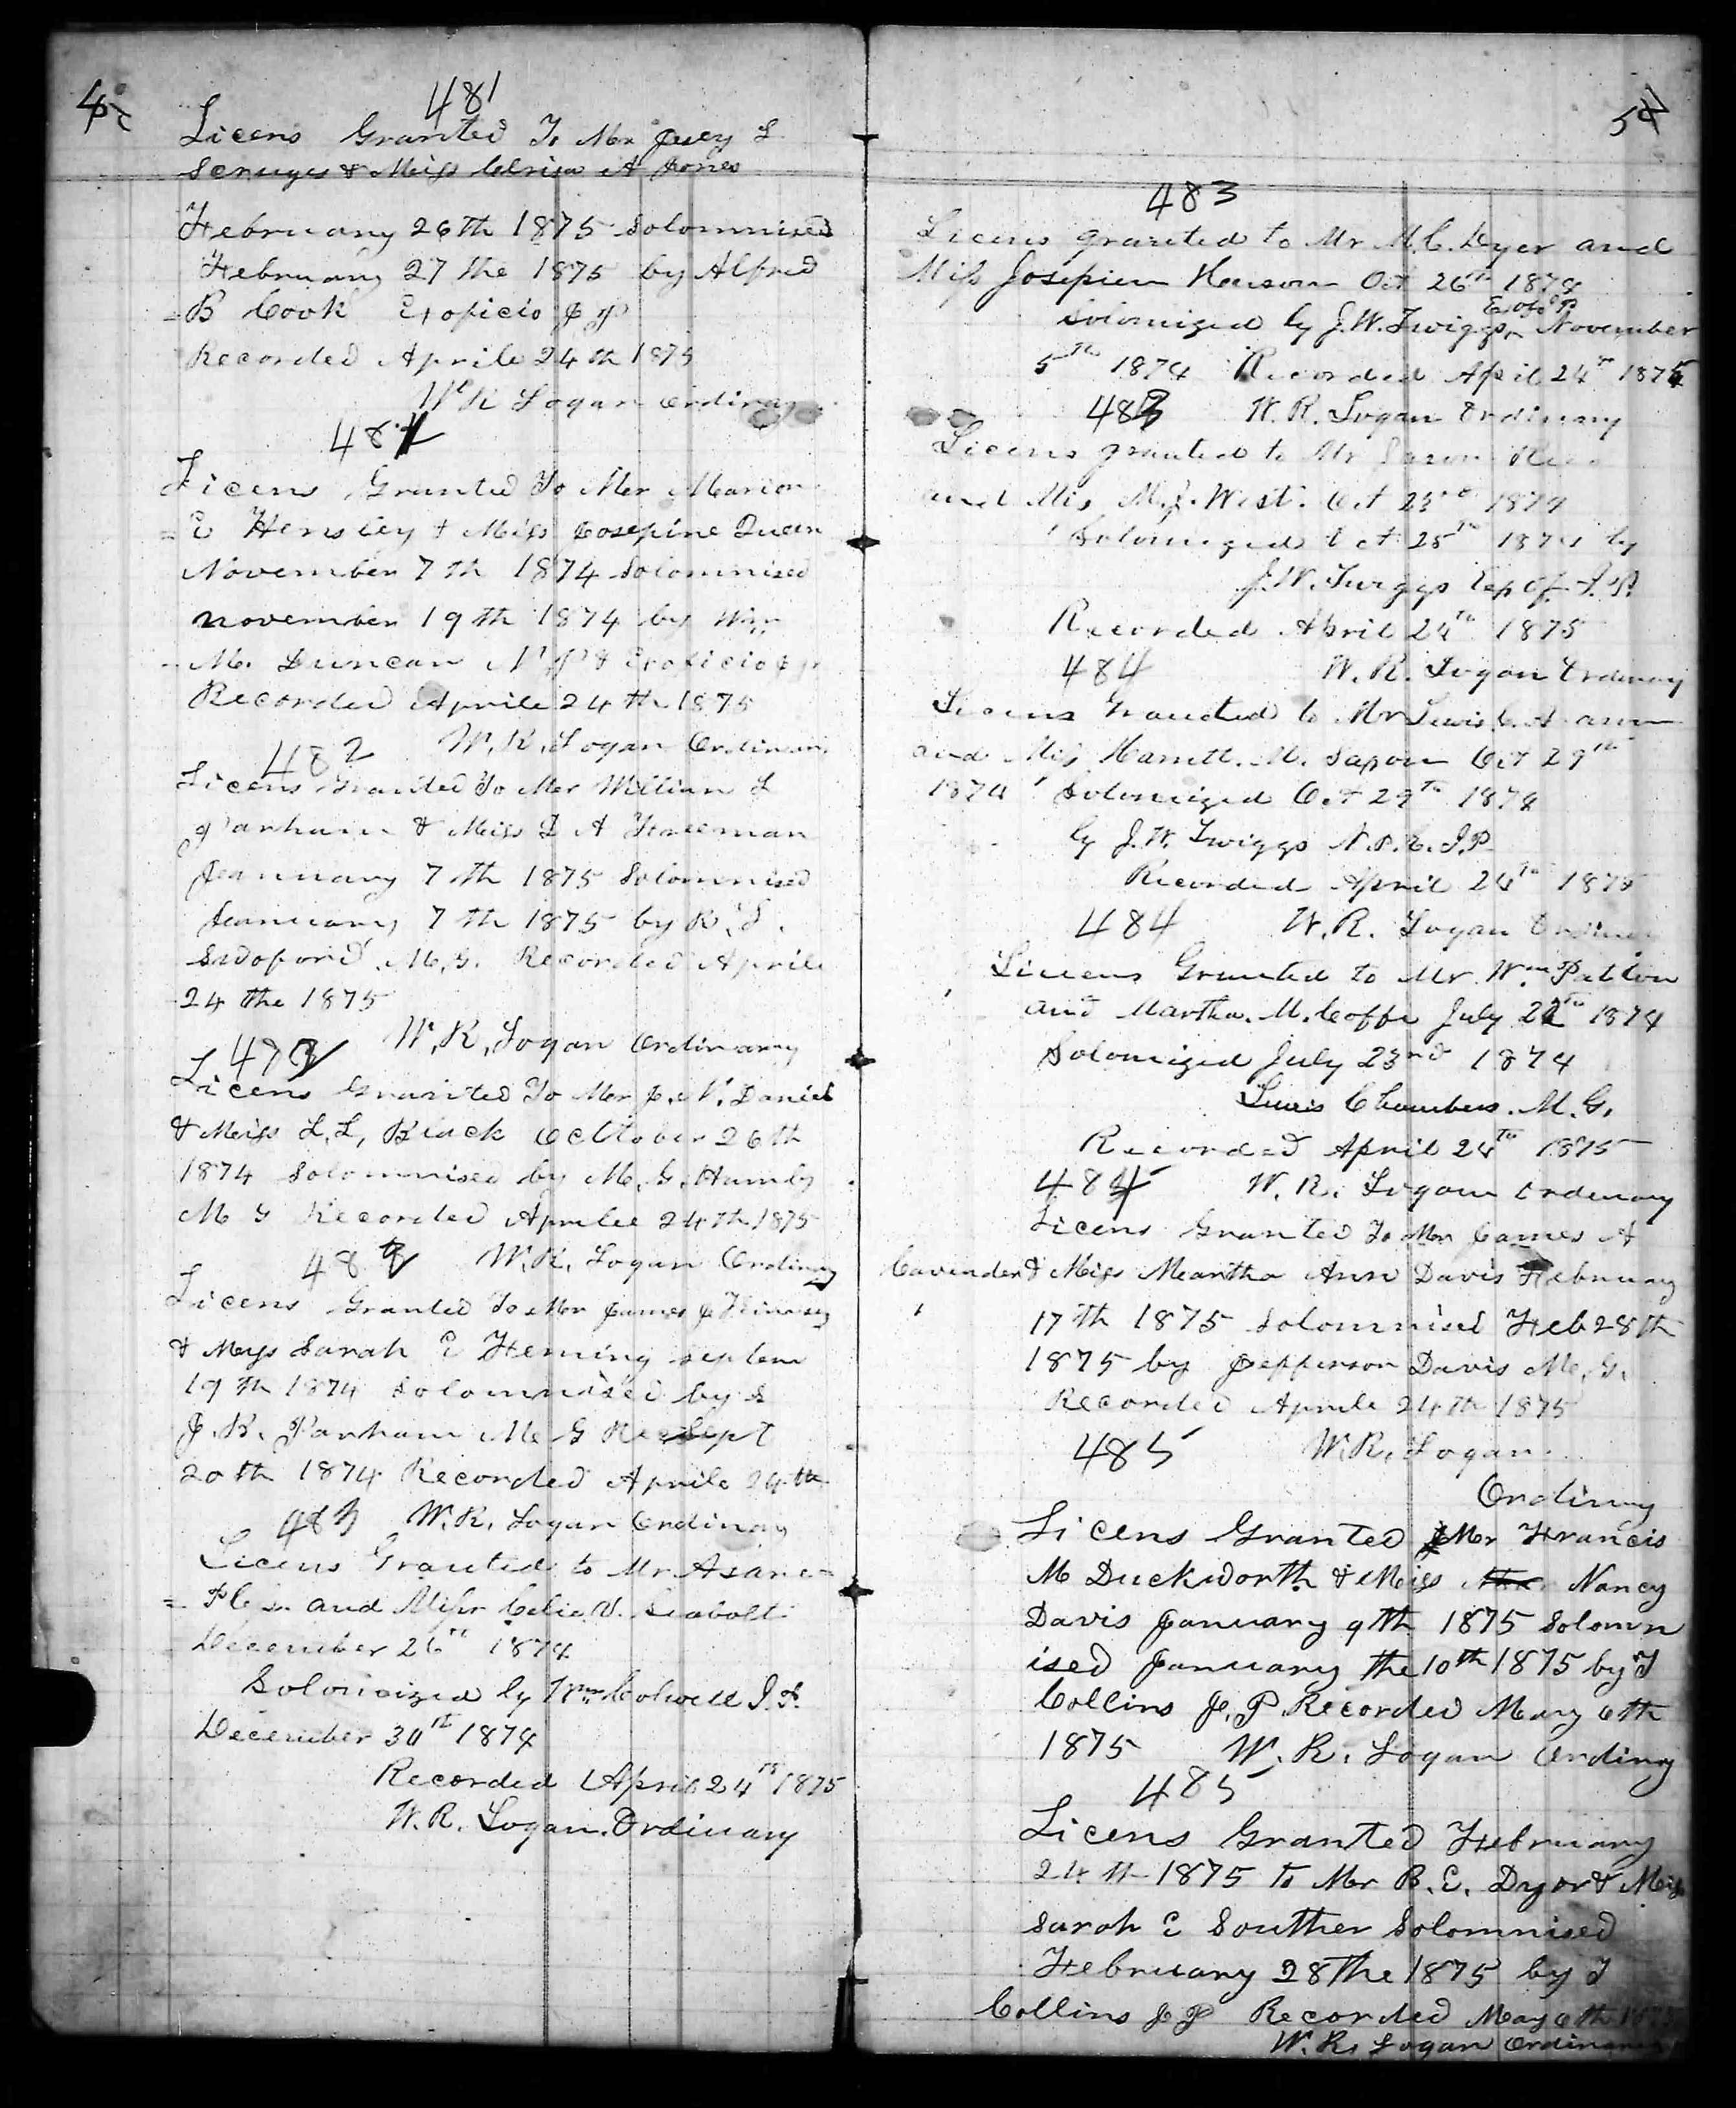 481
Licens Granted To Mr Jesey L
Scruges & Miss A Jones
February 26th 1875 Solomnised
February 27 the 1875 by Alfred
B Cook Exoficio J P
Recorded Aprile 24th 1875
W R Logan Ordinary
48
Licens Granted To Mr Marion
E Hensley & Miss Josepine Queen
November 7th 1874 Solomnised
november 19th 1874 by Wm
M. Duncan N P & Exoficio J P
Recorded Aprile 24th 1875
482 W, R, Logan Ordinary
Licens Granted To Mr William L
Parham & Miss A Freeman
Jeannuary 7th 1875 Solomnised
Jeannuary 7th 1875 by R, S.
M, G. Recorded Aprile
24 the 1875
W, R, Logan Ordinary
Licens Granted To Mr J. N. Daniel
& Miss L. L, Black October 26th
1874 Solomnised by M. G. Hamby
M G Recorded Aprilee 24th 1875
48 W. R, Logan Ordinary
Licens Granted To Mr James J
& Miss Sarah E Fleming septem
19th 1874 Solomnised by
J. R. Parham M G Sept
20th 1874 Recorded Aprile 24th
483 W. R, Logan Ordinary
Licens Granted to Mr
and Miss Celia V. Seabolt
December 26th 1874
Solomized by Wm Colwell J. P.
December 30th 1874
Recorded April 24th 1875
W. R. Logan. Ordinary
54
483
Licens granted to Mr M. C. Dyer and
Miss Josepien Oct 26th 1874
Exof J P
Solomized by J. W. Twiggs, November
5th 1874 Recorded April 24th 1875
483 W. R. Logan Ordinary
Licens granted to Mr
and Mis M. J. West. Oct 23rd 1874
Solomized Oct 25th 1874 by
J. W. Twiggs Exp Of. J. P.
Recorded April 24th 1875
484 W. R. Logan Ordinary
Licens Granted to Mr Lewis C.
and Miss Harrett. M. Oct 29th
1874 Solomized Oct 29th 1874
by J. W. Twiggs N. P. E. J. P
Recorded April 24th 1875
484 W. R. Logan Ordinary
Licens Granted to Mr. Wm Patton
and Martha. M. Coffe July 22th 1874
Solomized July 23rd 1874
Lewis Chambers. M. G.
Recorded April 24th 1875
484 W. R. Logan Ordinary
Licens Granted To Mr James A
Cavender & Miss Meartha Ann Davis February
17th 1875 Solomnised Feb 28th
1875 by Jefferson Davis M, G.
Recorded Aprile 24th 1875
485 W. R, Logan.
Ordinary
Licens Granted Mr Francis
M Duckworth & Miss Nancy
Davis January 9th 1875 Solomn
ised January the 10th 1875 by T
Collins J, P. Recorded May 6th
1875 W. R. Logan Ordinry
485
Licens Granted February
24th 1875 To Mr B. E. Dyer & Miss
Sarah E Souther Solomnised
February 28the 1875 by T
Collins J P Recorded May 6th 1875
W. R, Logan Ordinary